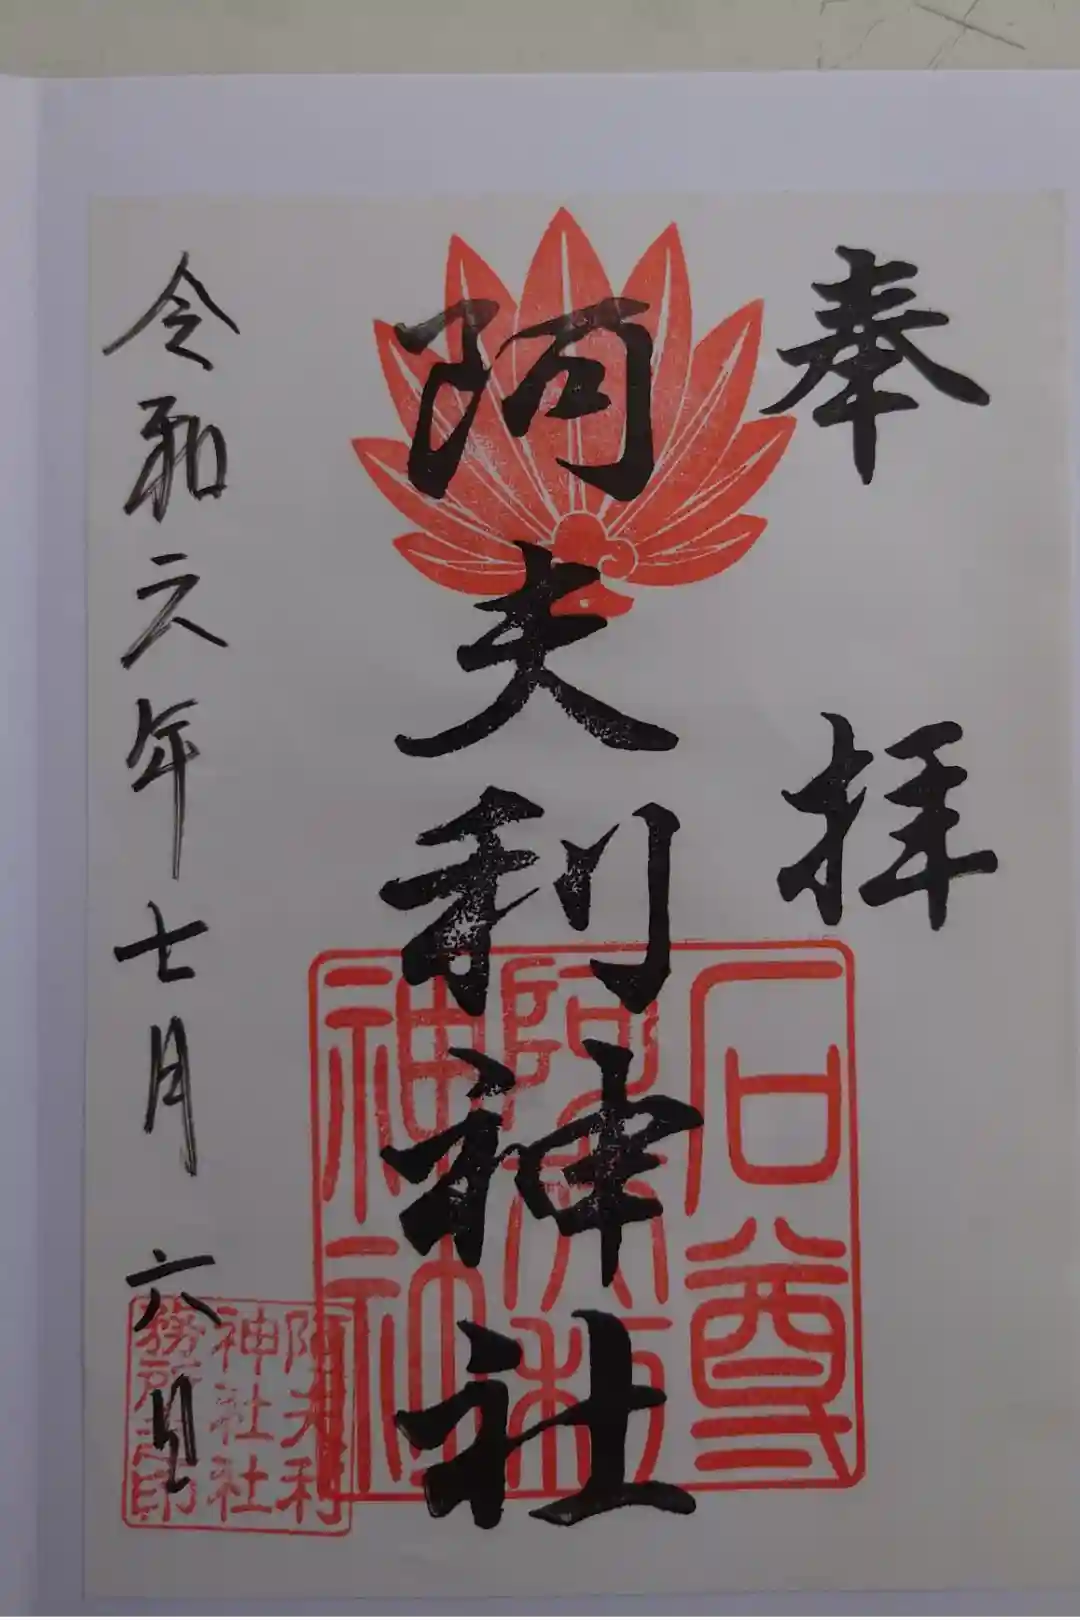 奉拝
阿夫利神社
令和六年七月六日
石尊
阿夫利
神社
阿夫利
神社社
務所之印